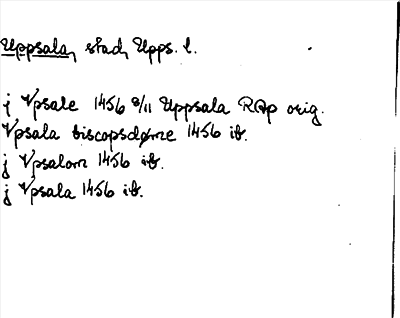 Uppsala, stad, Upps. l.
j Vpsale 1456 8/11 Uppsala RAp orig.
Vpsala biscopsdøme 1456 ib.
j Vpsalom 1456 ib.
j Vpsala 1456 ib.